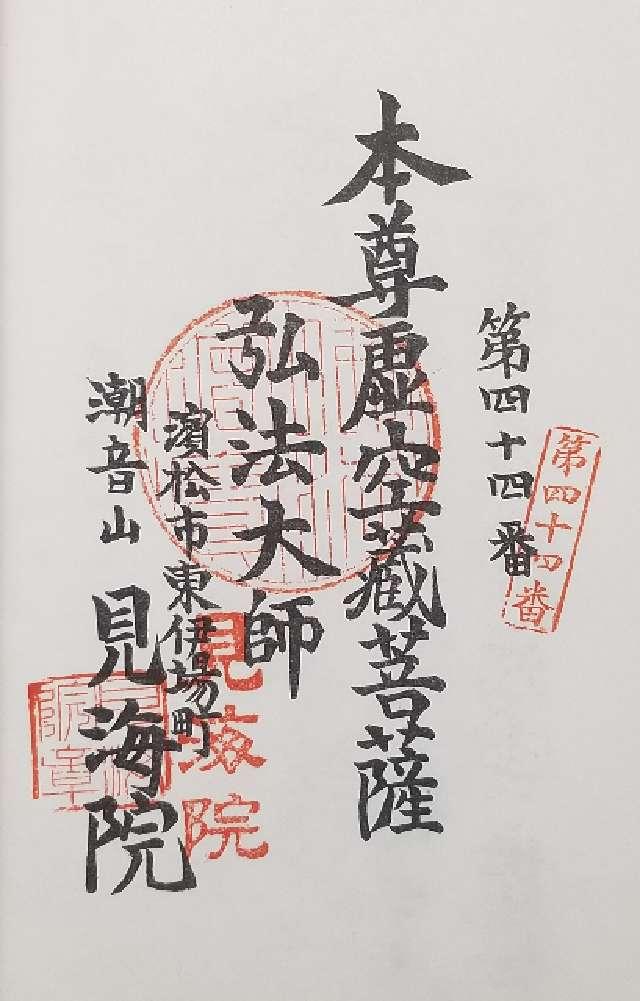 第四十四番
第四十四番
本尊虚空藏菩薩
弘法大師
濱松市東伊場町
見海院
潮音山 見海院